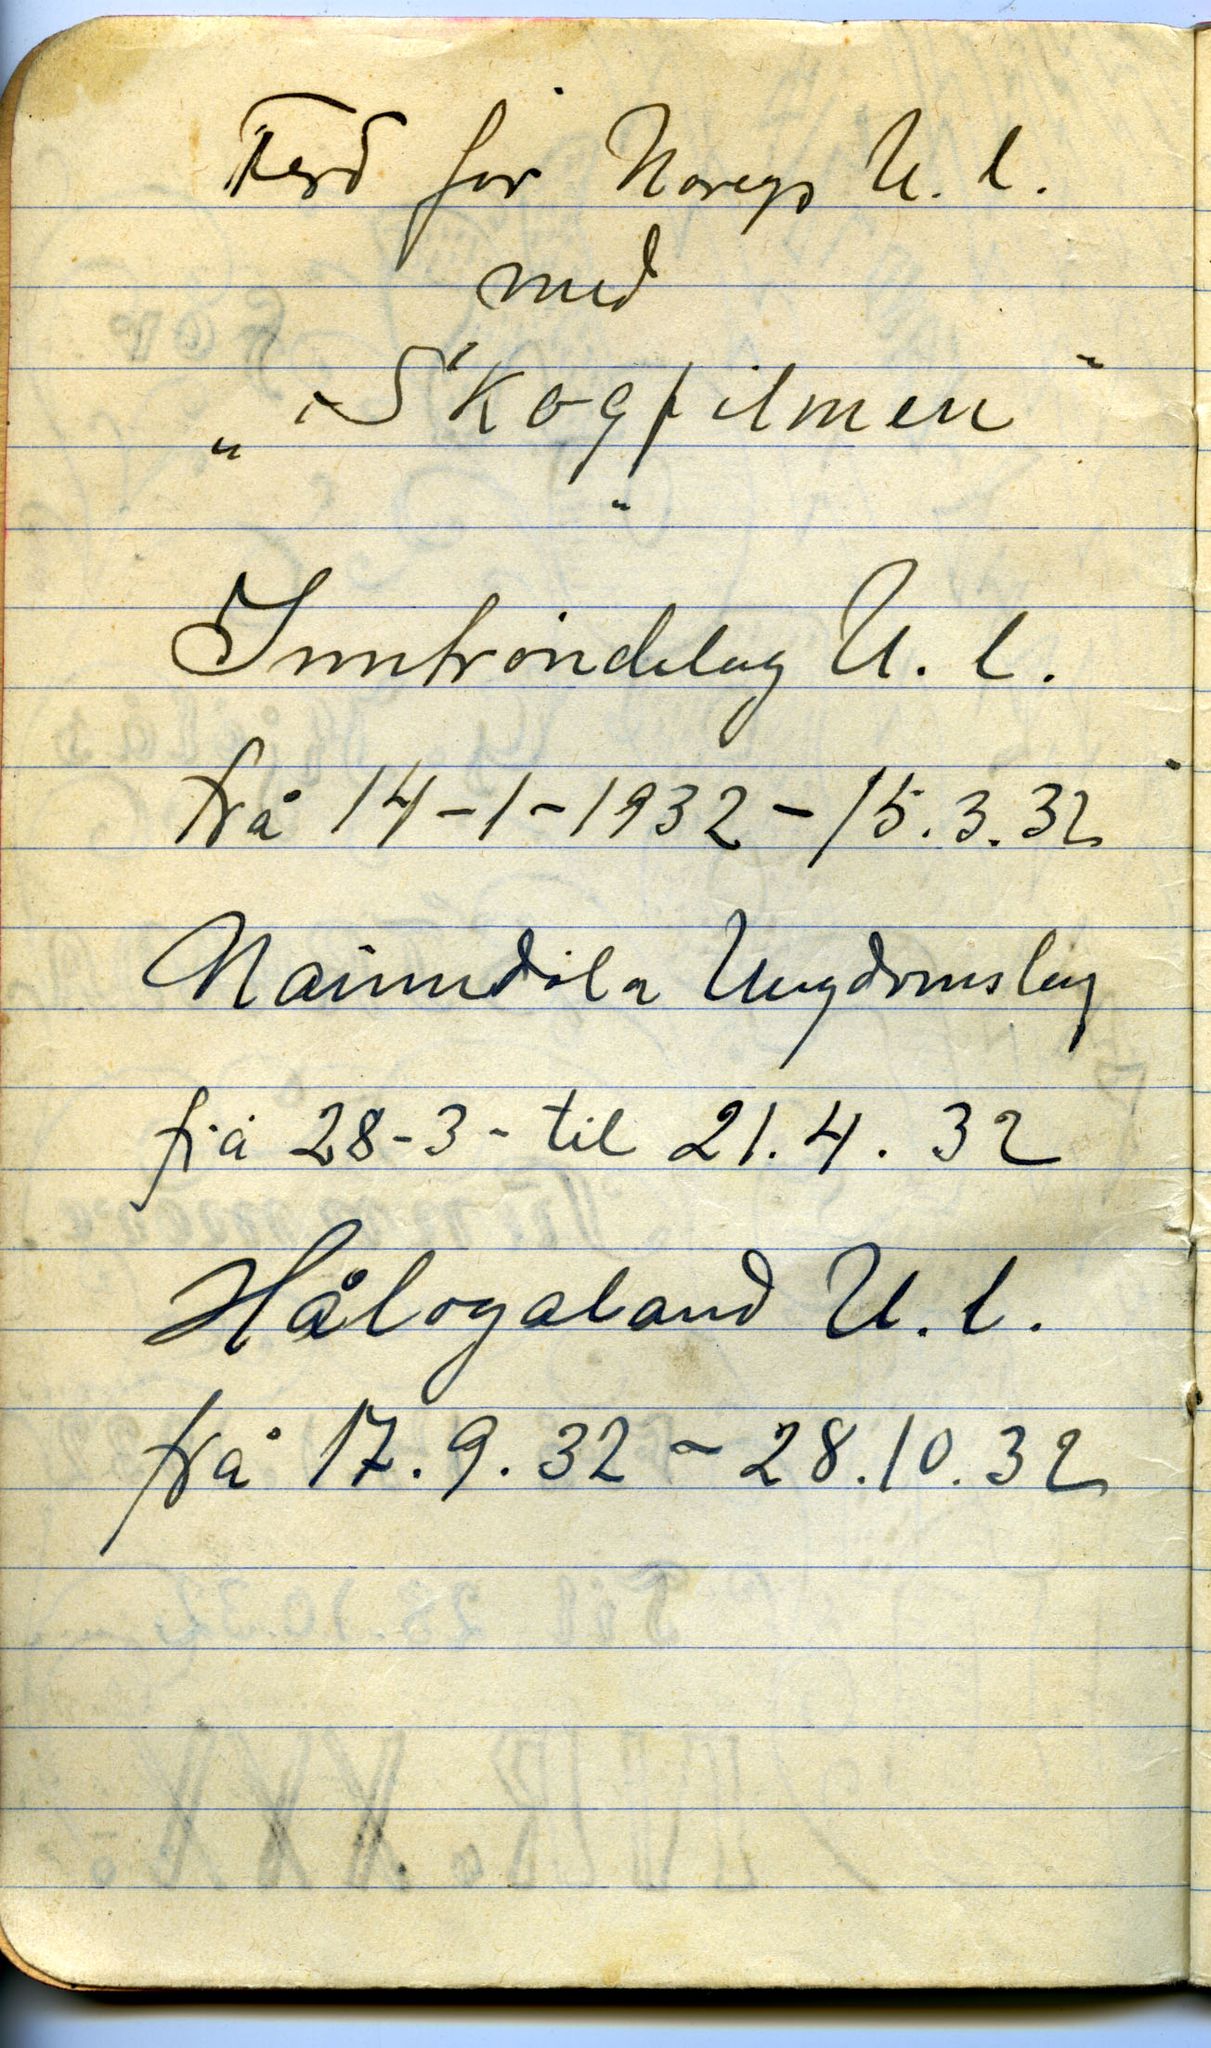 Ferd for Noregs U. l.
med
„Skogfilmen"
"
Inntröndelag U. l.
frå 14-1-1932 - 15.3.32
Naumdöla Ungdomslag
frå 28-3- til 21.4.32
Hålogaland U. l.
frå 17.9.32 - 28.10.32